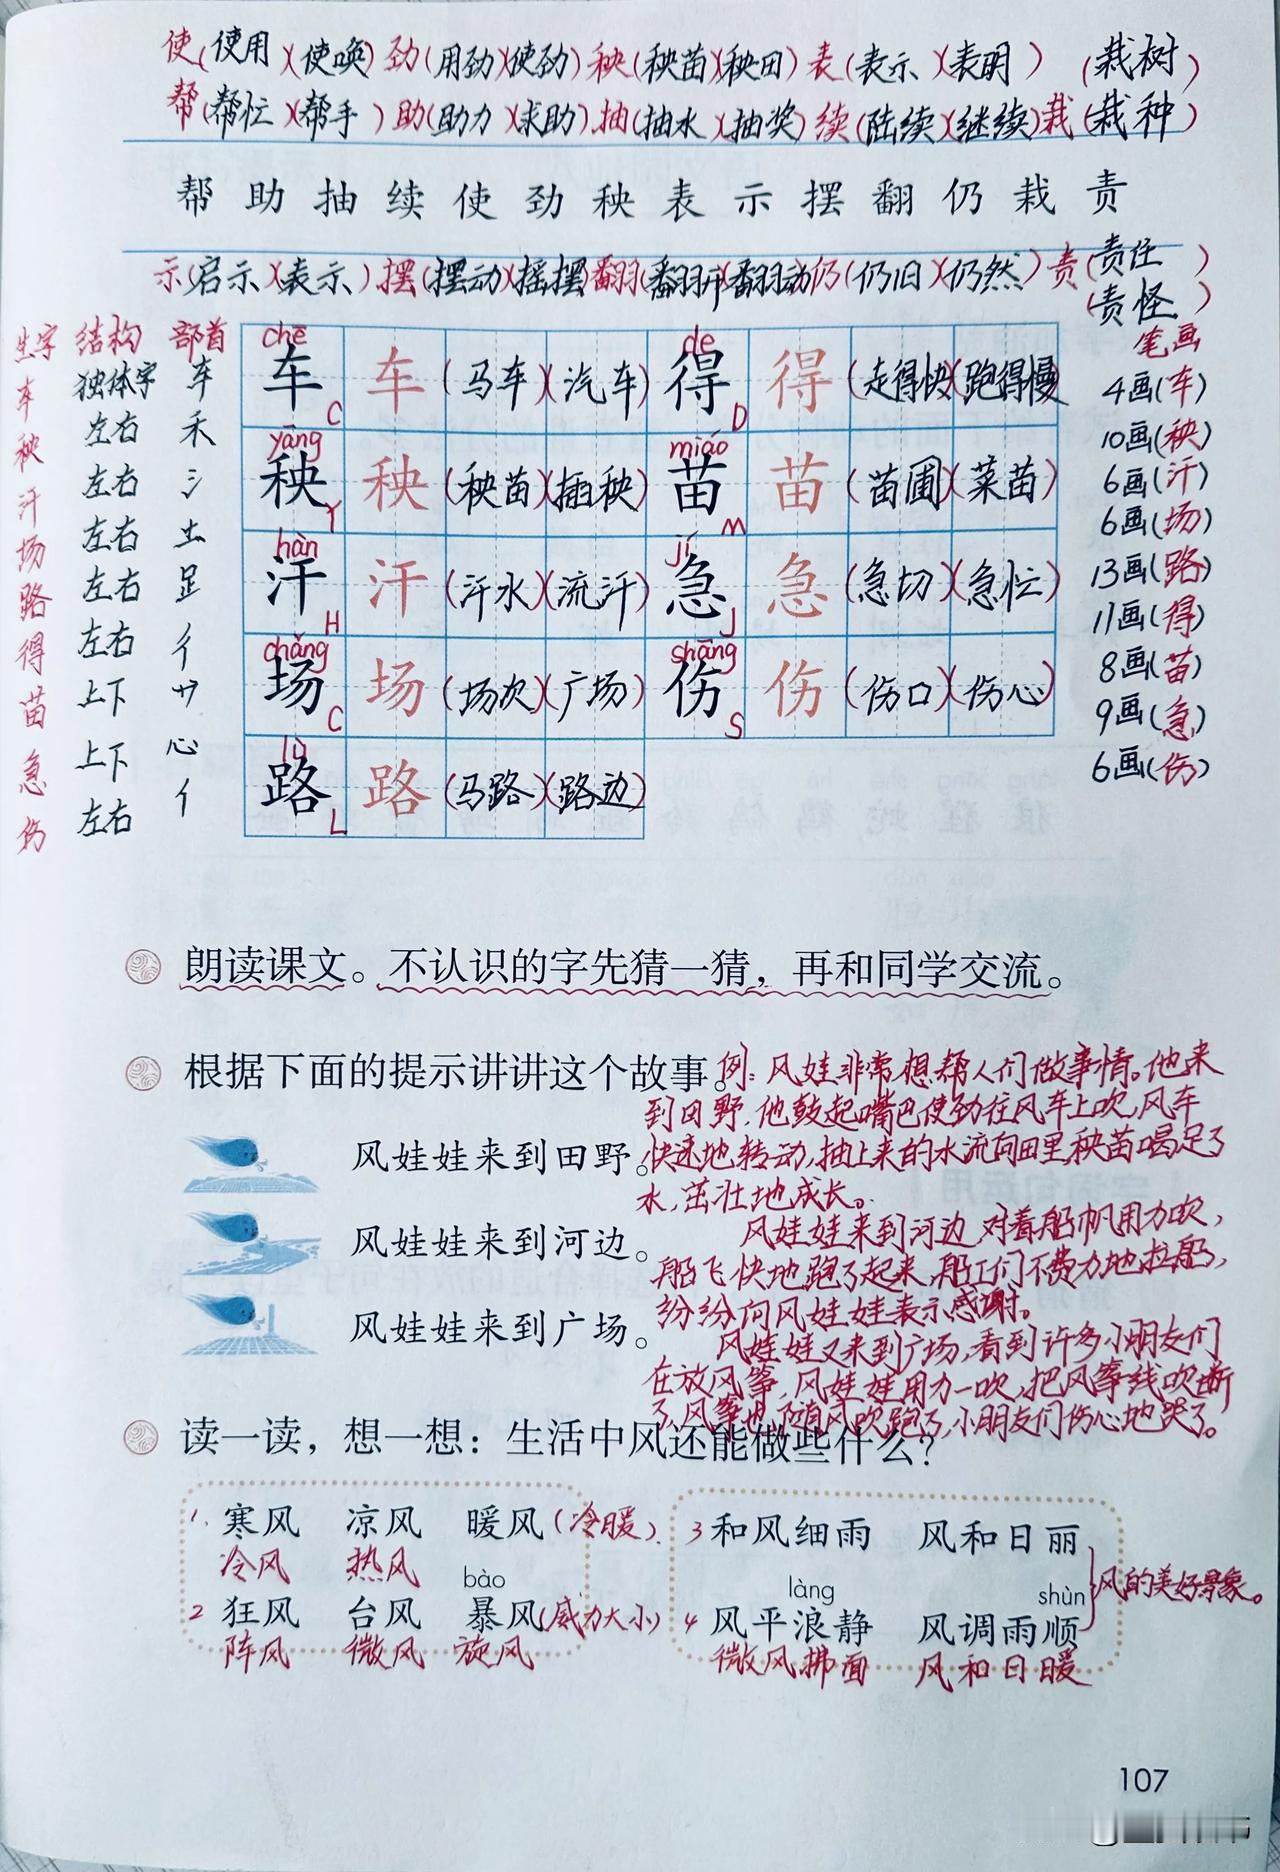 使(使用)(使唤) 劲(用劲)(使劲) 秧(秧苗)(秧田) 表(表示)(表明) (栽树)
帮(帮忙)(帮手) 助(助力)(求助) 抽(抽水)(抽奖) 续(陆续)(继续) 栽(栽种)
帮 助 抽 续 使 劲 秧 表 示 摆 翻 仍 栽 责
示(启示)(表示) 摆(摆动)(摇摆) 翻(翻开)(翻动) 仍(仍旧)(仍然) 责(责任)
(责怪)
生字 结构 部首
车 独体字 车
秧 左右 禾
汗 左右 氵
场 左右 土
路 左右 足
得 左右 彳
苗 上下 艹
急 上下 心
伤 左右 亻
chē de
车 车 (马车)(汽车) 得 得 (走得快)(跑得慢)
C D
yāng miáo
秧 秧 (秧苗)(插秧) 苗 苗 (苗圃)(菜苗)
Y M
hàn jí
汗 汗 (汗水)(流汗) 急 急 (急切)(急忙)
H J
chǎng shāng
场 场 (场次)(广场) 伤 伤 (伤口)(伤心)
C S
lù
路 路 (马路)(路边)
L
笔画
4画(车)
10画(秧)
6画(汗)
6画(场)
13画(路)
11画(得)
8画(苗)
9画(急)
6画(伤)
朗读课文。不认识的字先猜一猜，再和同学交流。
根据下面的提示讲讲这个故事。
风娃娃来到田野。
风娃娃来到河边。
风娃娃来到广场。
例：风娃非常想帮人们做事情。他来
到田野，他鼓起嘴巴使劲往风车上吹，风车
快速地转动，抽上来的水流向田里秧苗喝足了
水，茁壮地成长。
风娃娃来到河边对着船帆用力吹，
船飞快地跑了起来，船工们不费力地拉船，
纷纷向风娃娃表示感谢。
风娃娃又来到广场，看到许多小朋友们
在放风筝，风娃娃用力一吹，把风筝线吹断
了，风筝也随风吹跑了，小朋友们伤心地哭了。
读一读，想一想：生活中风还能做些什么？
1. 寒风 凉风 暖风(冷暖)
冷风 热风
bào
2 狂风 台风 暴风(威力大小)
阵风 微风 旋风
3 和风细雨 风和日丽
làng shùn
4 风平浪静 风调雨顺
微风拂面 风和日暖
风的美好景象。
107